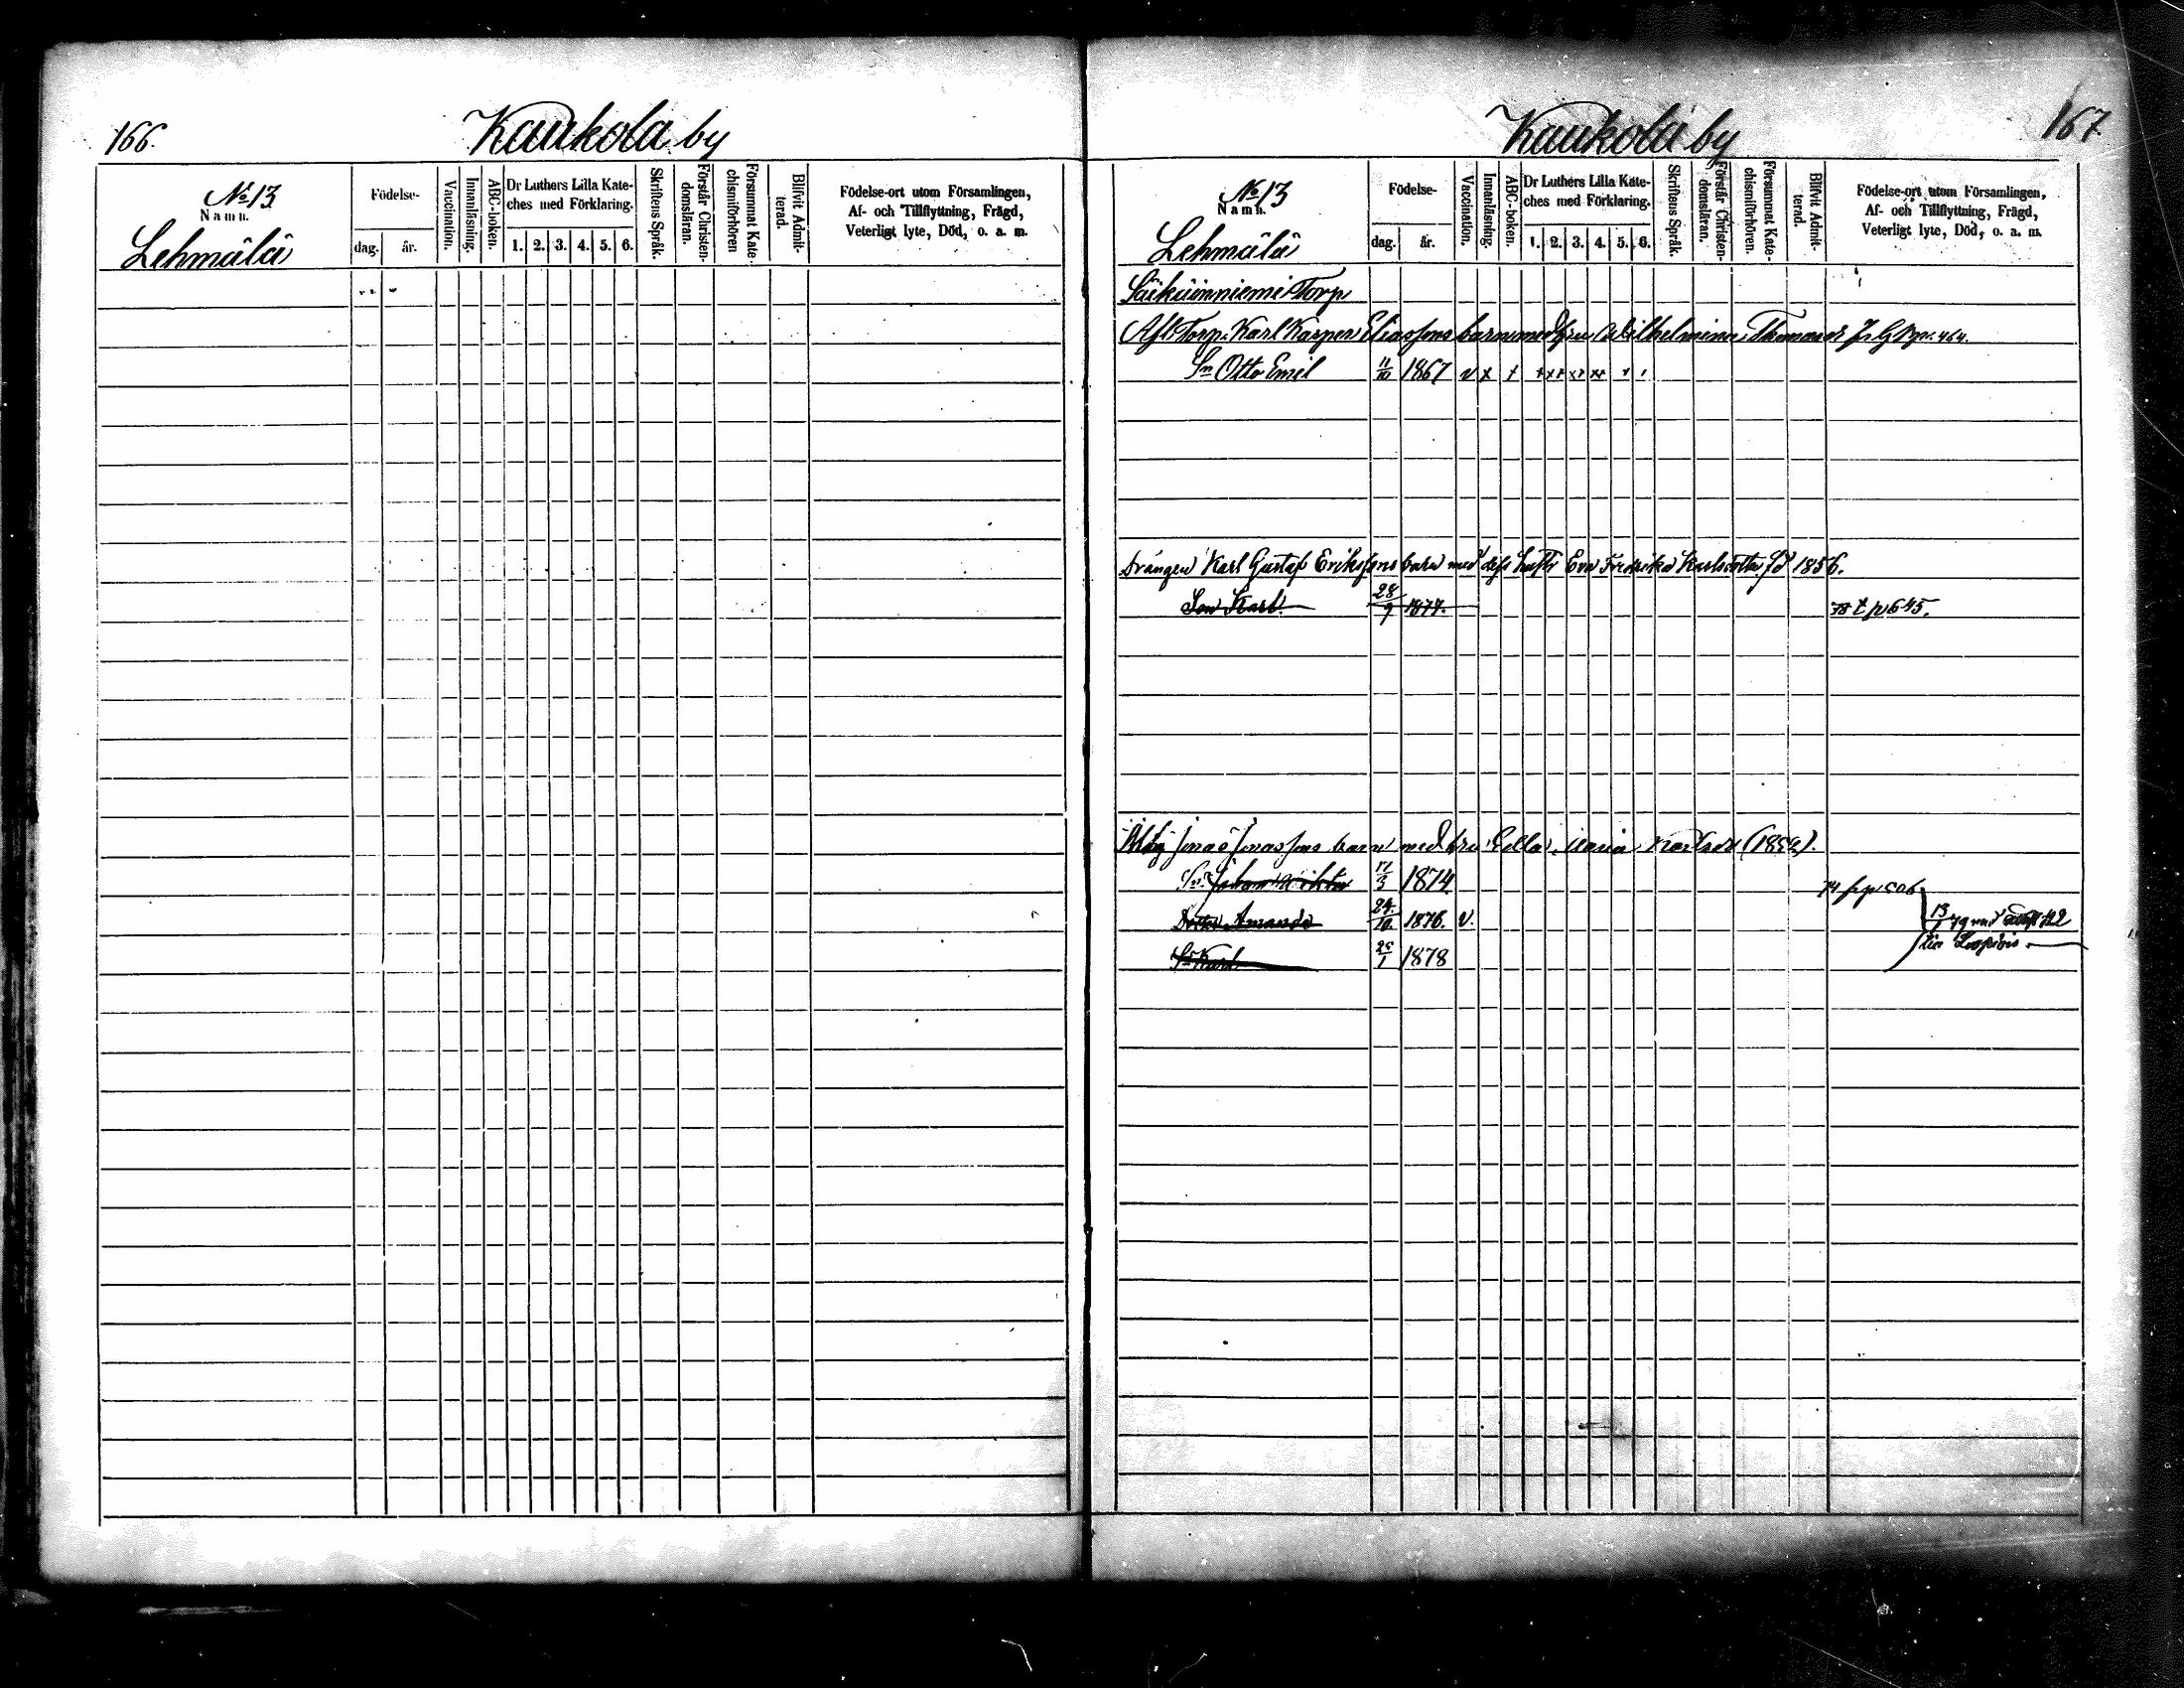 166.
Kaukola by
No 13
Namn.
Lehmälä
Födelse-
dag.
år.
Vaccination.
Innanläsning.
ABC-boken.
Dr Luthers Lilla Kate-
ches med Förklaring.
1. 2. 3. 4. 5. 6.
Skriftens Språk.
Förstår Christen-
domsläran.
Försummat Kate-
chismiförhören
Blifvit Admit-
terad.
Födelse-ort utom Församlingen,
Af- och Tillflyttning, Frägd,
Veterligt lyte, Död, o. a. m.
167
Kaukola by
No 13
Namn.
Lehmälä
Födelse-
dag.
år.
Vaccination.
Innanläsning.
ABC-boken.
Dr Luthers Lilla Kate-
ches med Förklaring.
1. 2. 3. 4. 5. 6.
Skriftens Språk.
Förstår Christen-
domsläran.
Försummat Kate-
chismiförhören.
Blifvit Admit-
terad.
Födelse-ort utom Församlingen,
Af- och Tillflyttning, Frägd,
Veterligt lyte, Död, o. a. m.
Torp
Afl. Torp. Karl Kasper Eliassons barn med hru Wilhelmina Thomasdr
Sn Otto Emil 11/10 1867 v x
Drängen Karl Gustaf Erikssons barn med dess hustr Eva Fredrika Karlsdotter fd 1856.
Son Karl 28/9 1877. 78 t p 645.
Jonas Jonassons barn med hru Maria Karlsdr
Sn Johan Viktor 17/3 1874
Dottr Amanda 24/10. 1876. v.
Sn Karl 25/1 1878